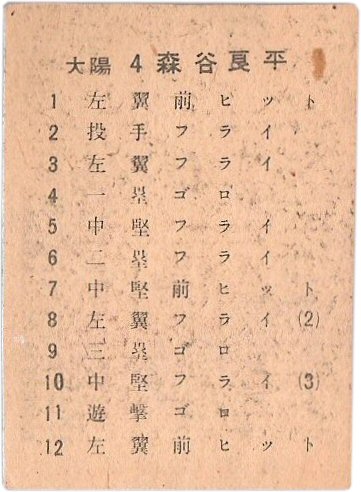 大陽 4 森谷良平
1 左翼前ヒット
2 投手フライ
3 左翼フライ
4 一塁ゴロ
5 中堅フライ
6 二塁フライ
7 中堅前ヒット
8 左翼フライ(2)
9 三塁ゴロ
10 中堅フライ(3)
11 遊撃ゴロ
12 左翼前ヒット